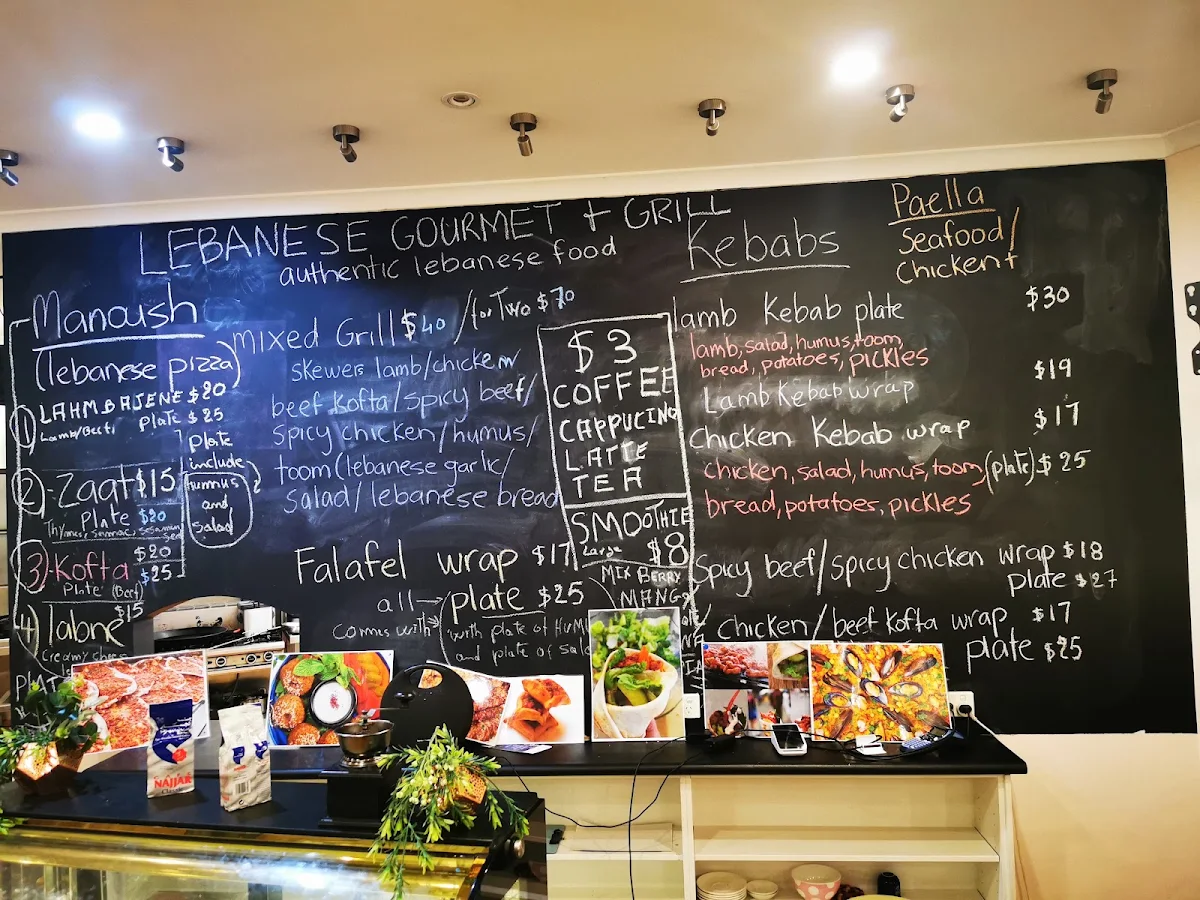 LEBANESE GOURMET + GRILL
authentic lebanese food
Manoush
(lebanese pizza)
1) LAHMBAJENE $20
Plate $25
Plate
include
hummus
and
salad
2) Zaat $15
Plate $20
3) Kofta $20
Plate (Beef) $25
4) labne $15
Creamy cheese
mixed Grill $40 / for Two $70
skewers lamb/chicken
beef kofta/spicy beef/
spicy chicken/humus/
toom (lebanese garlic/
salad/lebanese bread
Falafel wrap $17
all → plate $25
comus with → with plate of HUM
and plate of sal
$3
COFFEE
CAPPUCINO
LATTE
TEA
SMOOTHIE
Large $8
MIX BERRY
MANGO
Kebabs
lamb Kebab plate $30
lamb, salad, humus, toom,
bread, potatoes, pickles
Lamb Kebab wrap $19
chicken Kebab wrap $17
chicken, salad, humus, toom, (plate) $25
bread, potatoes, pickles
Spicy beef/spicy chicken wrap $18
plate $27
chicken/beef kofta wrap $17
plate $25
Paella
Seafood/
chicken +
NAJJAR